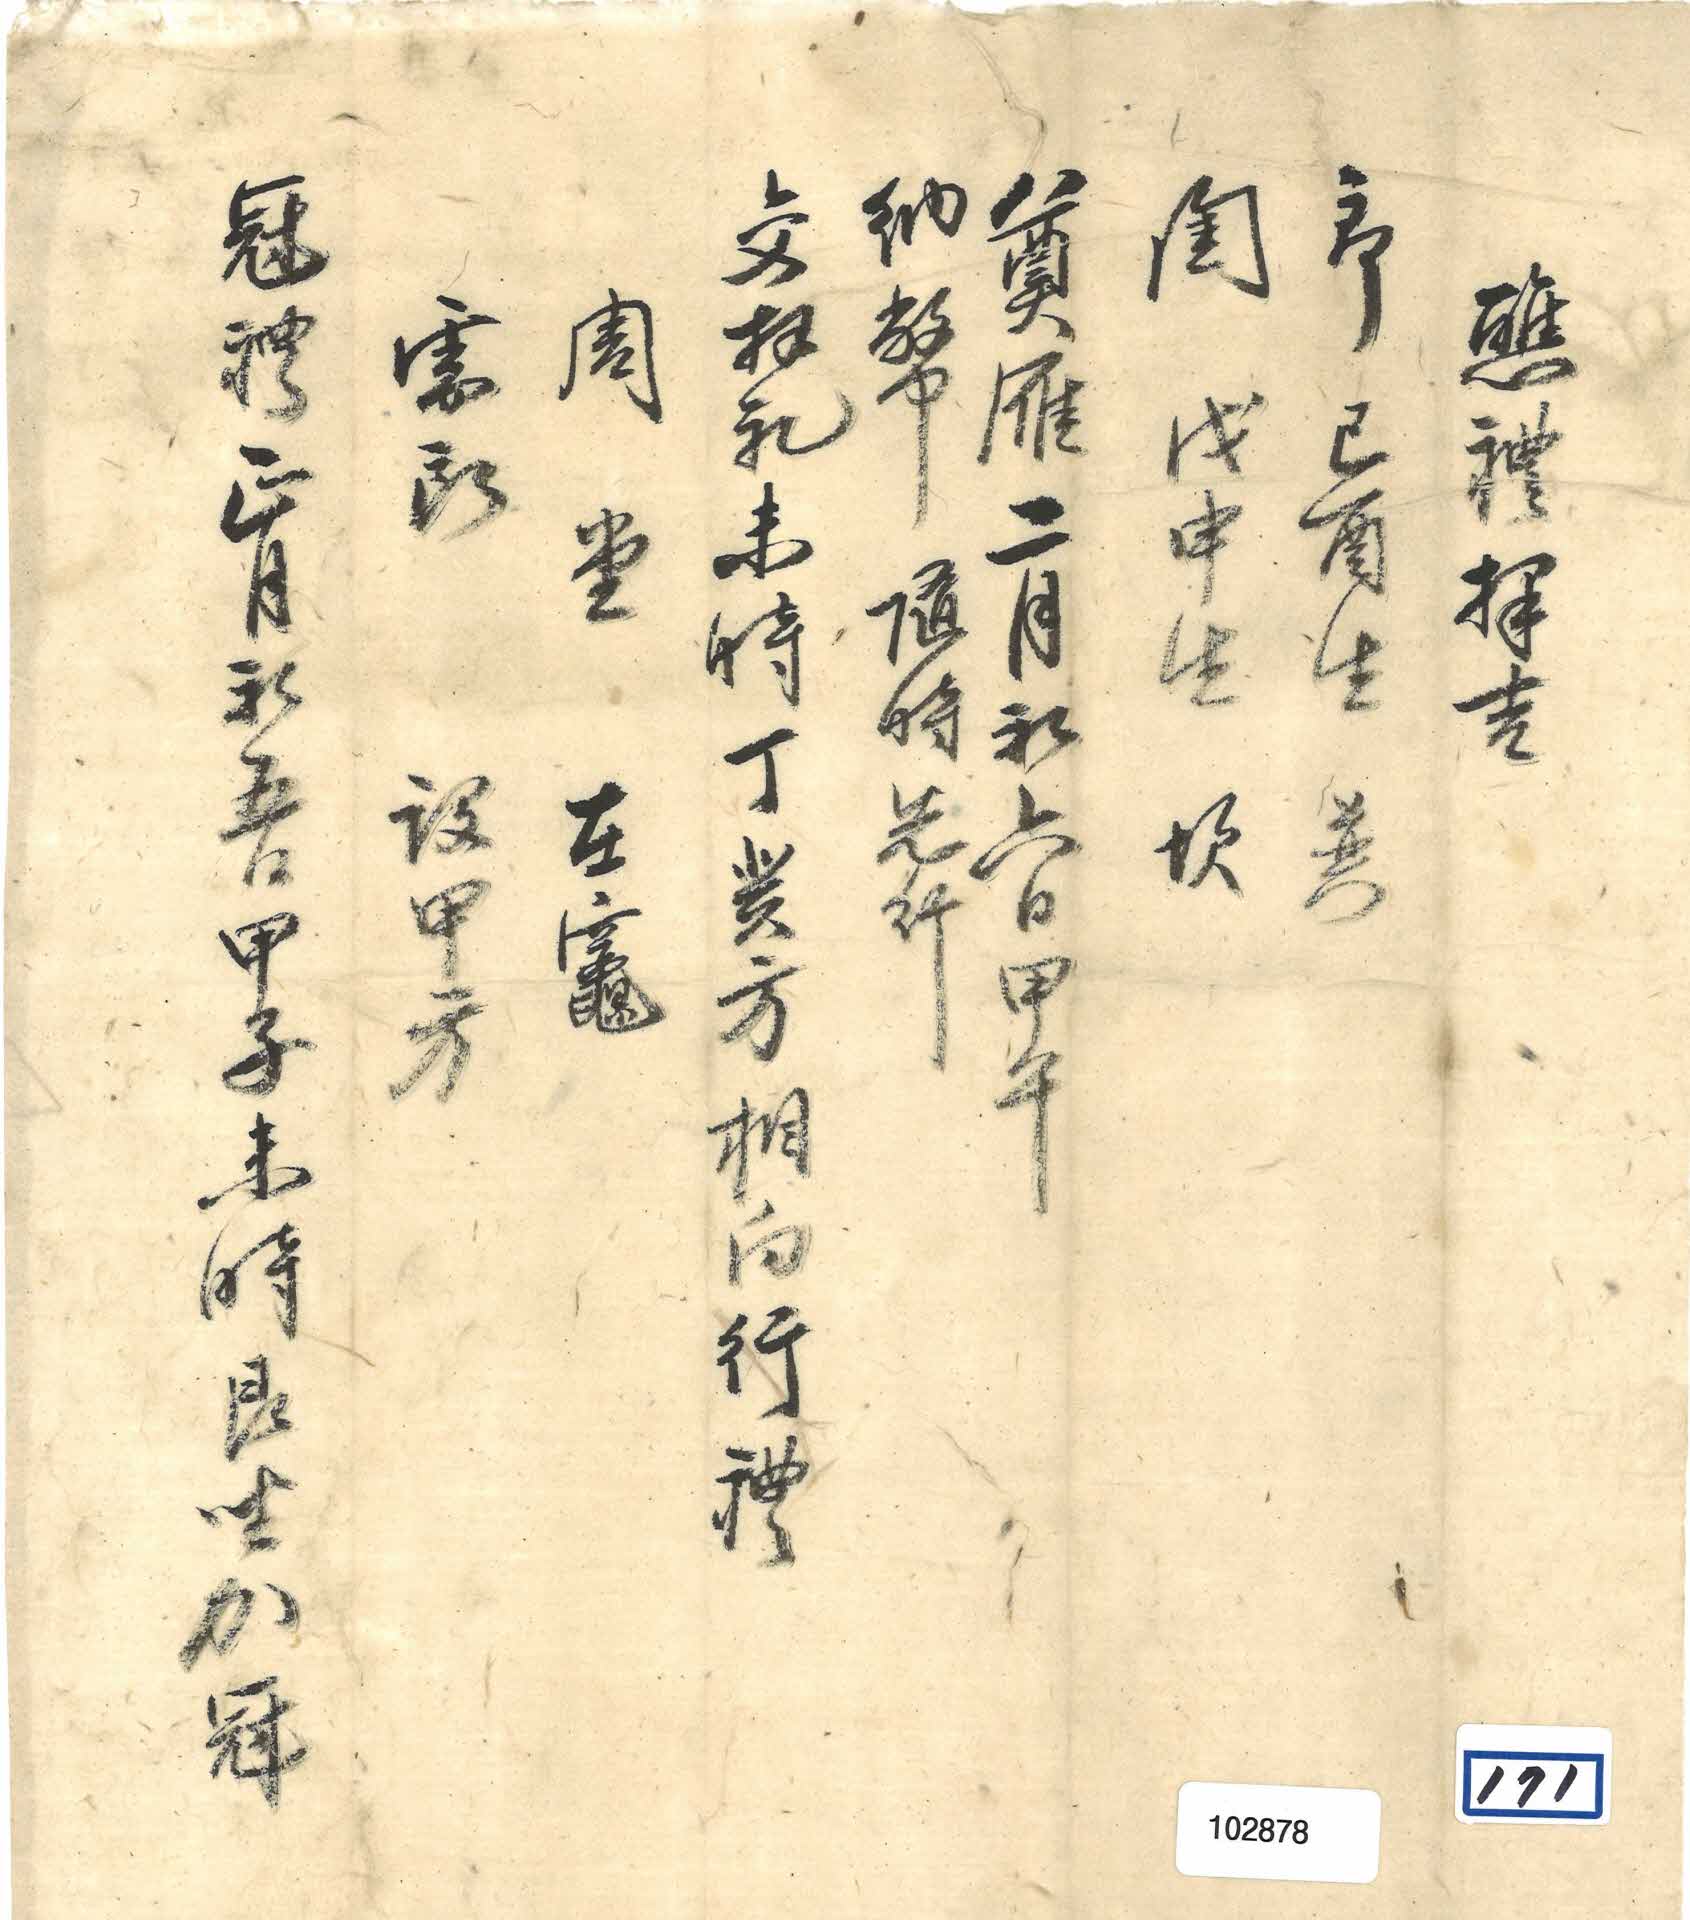 醮禮擇吉
郎 己酉生 巽
閨 戊申生 坎
奠雁 二月初六日甲午
納幣 隨時先行
交拜礼未時丁癸方相向行禮
周堂 在竈
設甲方
冠禮正月初五日甲子未時艮坐加冠
171
102878